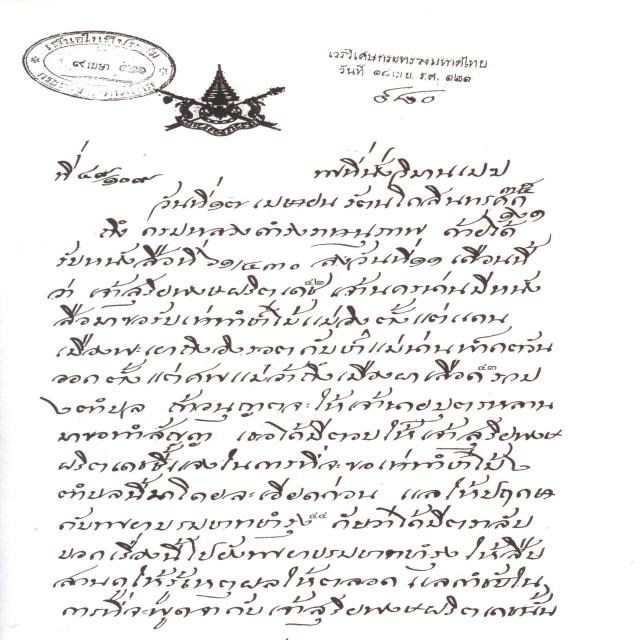 ๙ เมษา ๑๒๑
เวรวิเศษกระทรวงมหาดไทย
วันที่ ๑๘ เม.ย. ร.ศ. ๑๒๑
ที่ ๔๙/๑๐๙ พที่นั่งวิมานเมฆ
วันที่ ๑๗ เมษายน รัตนโกสินทรศก ๑๒๑
ถึง กรมหลวงดำรงราชานุภาพ ด้วยได้
รับหนังสือที่ ๖๑/๔๓๐ ลงวันที่ ๑๑ เดือนนี้
ว่า เจ้าสุริยพงษผริตเดช ๔๒ เจ้านครน่านมีหนัง
สือมาขอรับเช่าทำป่าไม้แม่อิงตั้งแต่แดน
เมืองพะเยาถึงอิงรอด กับป่าแม่น่านฟากตวัน
ออกตั้งแต่ศพแม่ว้าถึงเมืองผาเลือด ๔๓ รวม
๖ ตำบล ถ้าอนุญาตจะให้เจ้านายบุตรหลาน
มาขอทำสัญญา เธอได้มีตอบให้เจ้าสุริยพงษ
ผริตเดชชี้แจงในการที่จะขอเช่าทำป่าไม้ ๖
ตำบลนี้มาโดยละเอียดก่อน แลให้ปฤกษา
กับพระยาบรมบาทบำรุง ๔๔ กับว่าได้มีตรากลับ
บอกเรื่องนี้ไปยังพระยาบรมบาทบำรุง ให้สืบ
สวนดูให้รู้เหตุผลให้ตลอด แลกำชับใน
การที่จะพูดจากับเจ้าสุริยพงษผริตเดชนั้น